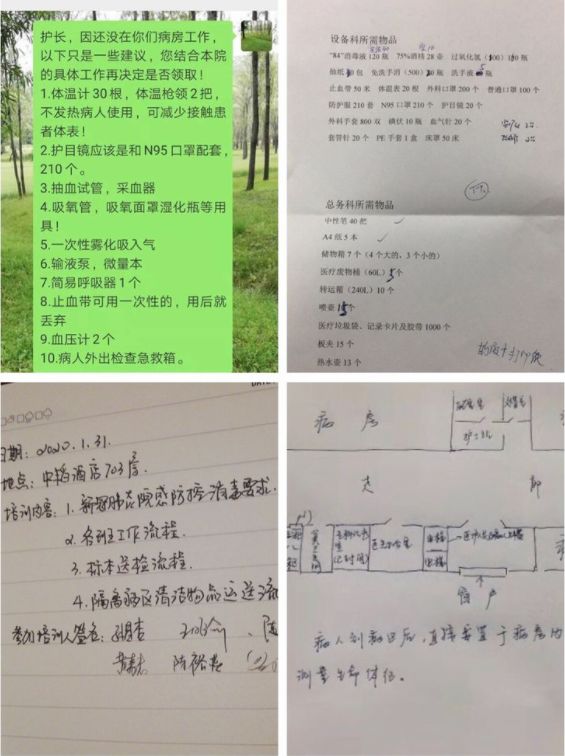 护长，因还没在你们病房工作，
以下只是一些建议，您结合本院
的具体工作再决定是否领取！
1.体温计30根，体温枪领2把，
不发热病人使用，可减少接触患
者体表！
2.护目镜应该是和N95口罩配套，
210个。
3.抽血试管，采血器
4.吸氧管，吸氧面罩湿化瓶等用
具！
5.一次性雾化吸入气
6.输液泵，微量本
7.简易呼吸器1个
8.止血带可用一次性的，用后就
丢弃
9.血压计2个
10.病人外出检查急救箱。
设备科所需物品
"84"消毒液120瓶 75%酒精28壶 过氧化氢（100）10瓶
抽纸 包 免洗手消（500）20瓶 洗手液5瓶
止血带50米 体温表20根 外科口罩200个 普通口罩100个
防护服210套 N95口罩210个 护目镜20个
外科手套800双 碘伏10瓶 血气针20个
套管针20个 PE手套1盒 床罩50床
总务科所需物品
中性笔40把
A4纸5本
储物箱7个（4个大的、3个小的）
医疗废物桶（60L）5个
转运箱（240L）10个
喷壶15个
医疗垃圾袋、记录卡片及胶带1000个
板夹15个
热水壶13个
日期：2020.1.31.
地点：中韬酒店703房.
培训内容：1.新冠肺炎院感防控消毒要求.
2.各班工作流程.
3.标本送检流程.
4.隔离病区清洁物品运送流
参加培训人签名：
病 房
护士站
走 廊
窗户
病人到教后，直接安置于病房内
测量生命体征。